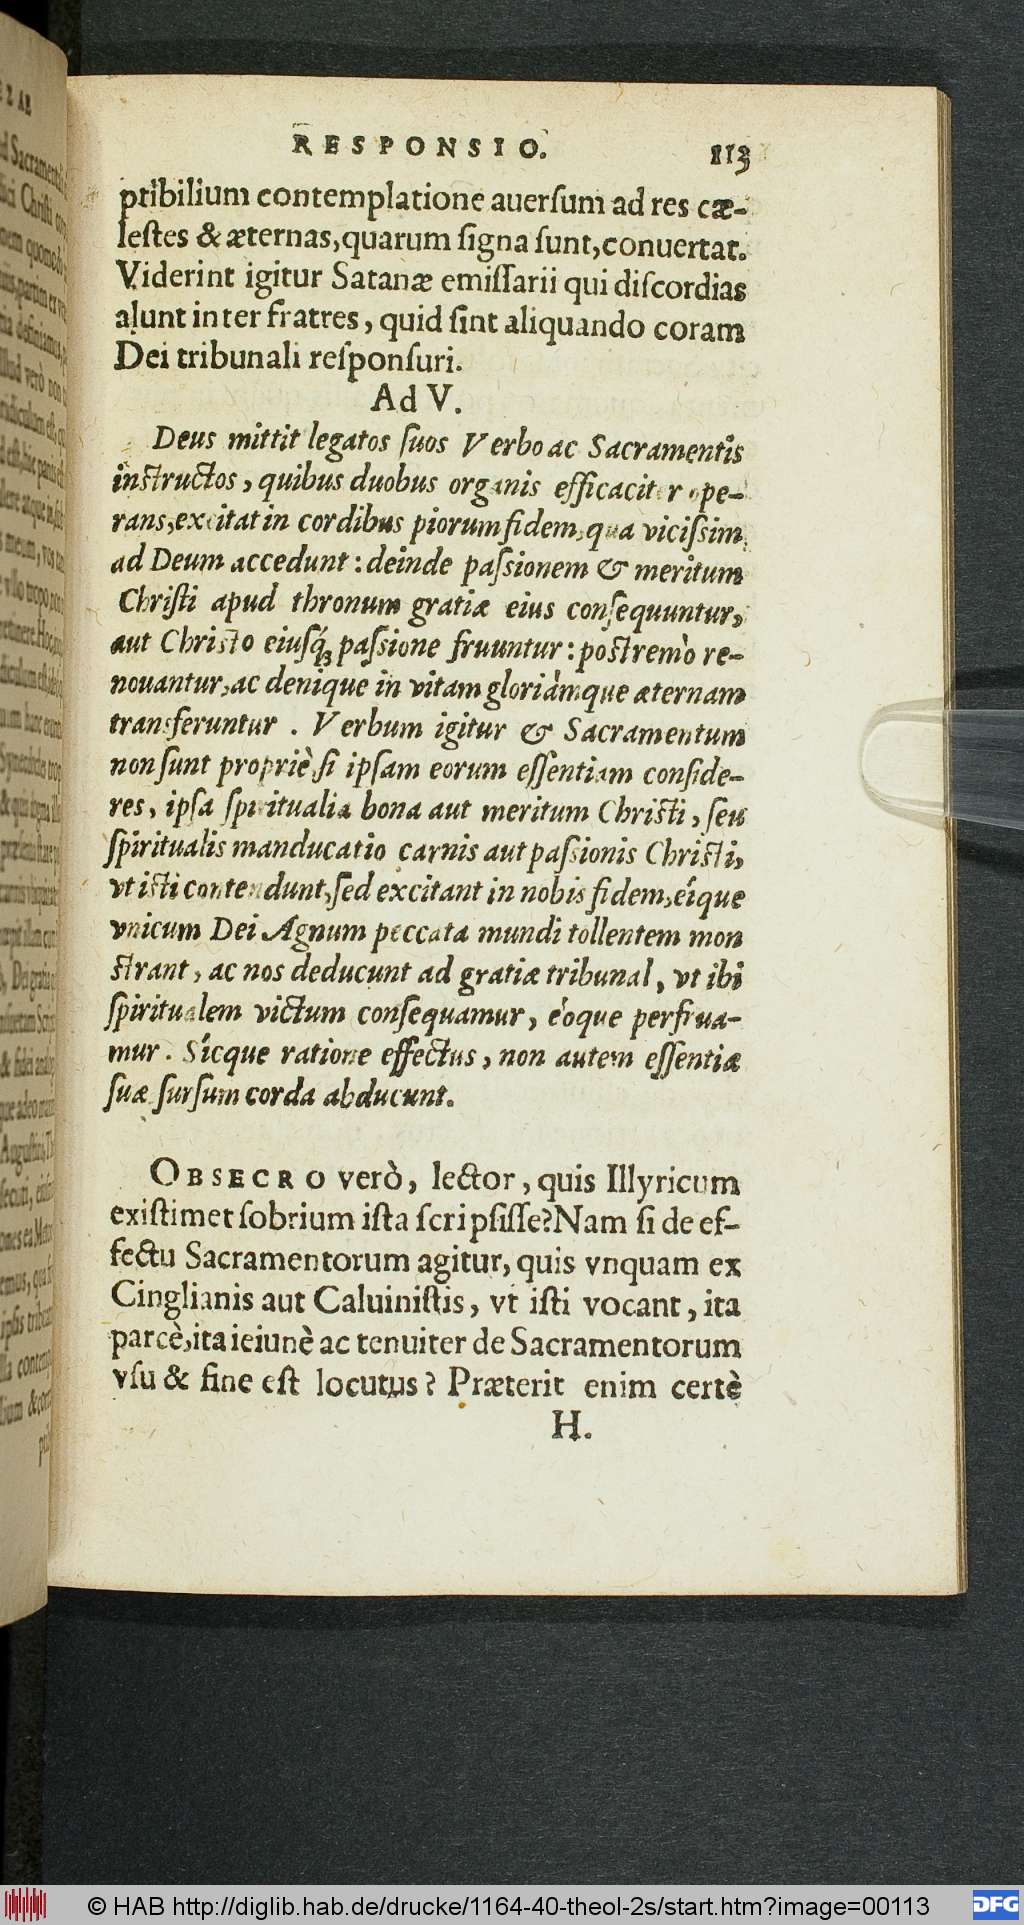 RESPONSIO. 113
ptibilium contemplatione auerſum ad res cæ-
leſtes & æternas, quarum ſigna ſunt, conuertat.
Viderint igitur Satanæ emiſſarii qui diſcordias
alunt inter fratres, quid ſint aliquando coram
Dei tribunali reſponſuri.
Ad V.
Deus mittit legatos ſuos Verbo ac Sacramentis
inſtructos, quibus duobus organis efficaciter ope-
rans, excitat in cordibus piorum fidem, qua viciſſim
ad Deum accedunt: deinde paſsionem & meritum
Chriſti apud thronum gratiæ eius conſequuntur,
aut Chriſto eiuſq́ꝫ paſsione fruuntur: poſtremò re-
nouantur, ac denique in vitam gloriámque æternam
transferuntur. Verbum igitur & Sacramentum
non ſunt propriè, ſi ipſam eorum eſſentiam conſide-
res, ipſa ſpiritualia bona aut meritum Chriſti, ſeu
ſpiritualis manducatio carnis aut paſsionis Chriſti,
vt iſti contendunt, ſed excitant in nobis fidem, eíque
vnicum Dei Agnum peccata mundi tollentem mon
ſtrant, ac nos deducunt ad gratiæ tribunal, vt ibi
ſpiritualem victum conſequamur, eóque perfrua-
mur. Sícque ratione effectus, non autem eſſentiæ
ſuæ ſurſum corda abducunt.
OBSECRO verò, lector, quis Illyricum
exiſtimet ſobrium iſta ſcripſiſſe? Nam ſi de ef-
fectu Sacramentorum agitur, quis vnquam ex
Cinglianis aut Caluiniſtis, vt iſti vocant, ita
parcè, ita ieiunè ac tenuiter de Sacramentorum
vſu & fine eſt locutus? Præterit enim certè
H.
© HAB http://diglib.hab.de/drucke/1164-40-theol-2s/start.htm?image=00113
DFG